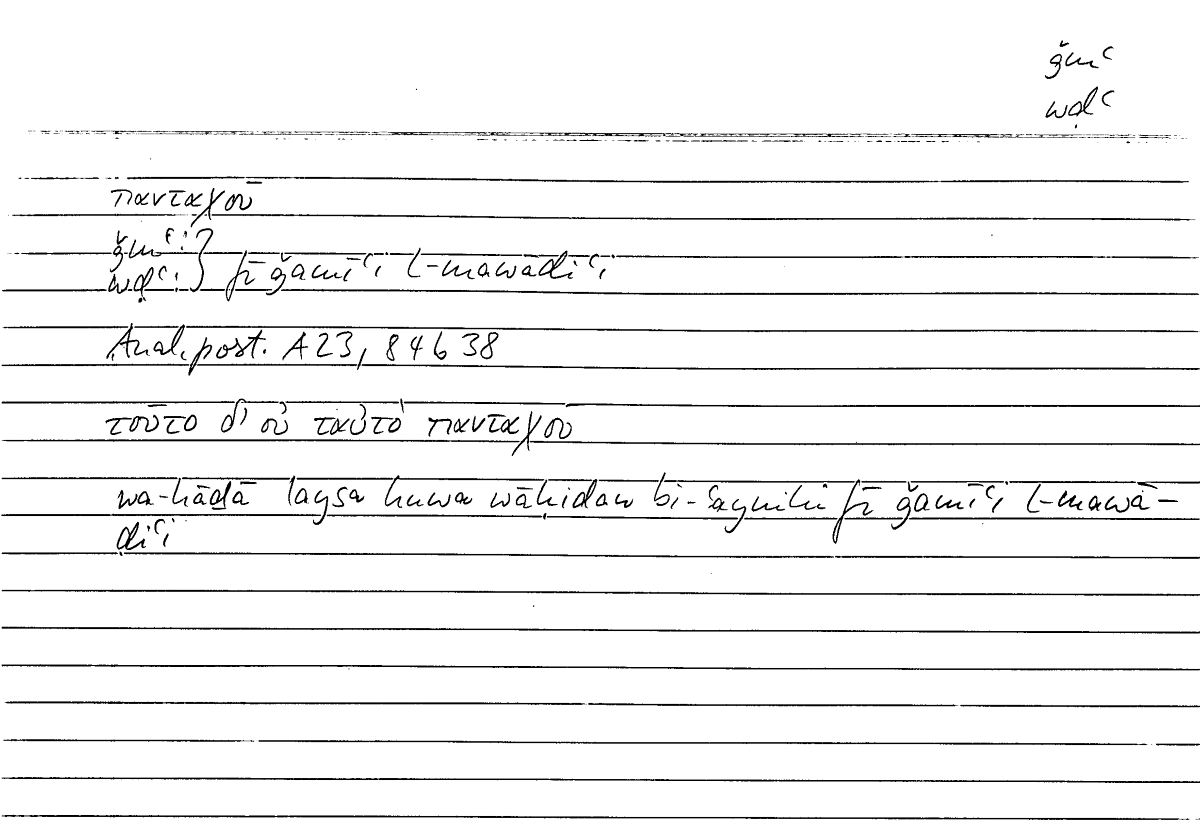 ǧmʿ
wḍʿ
πανταχοῦ
ǧmʿ:
wḍʿ: } fī ǧamīʿi l-mawāḍiʿi
Anal. post. A23, 84b38
τοῦτο δ' οὐ ταὐτὸ πανταχοῦ
wa-hāḏā laysa huwa wāḥidan bi-ʿaynihī fī ǧamīʿi l-mawā-
ḍiʿi